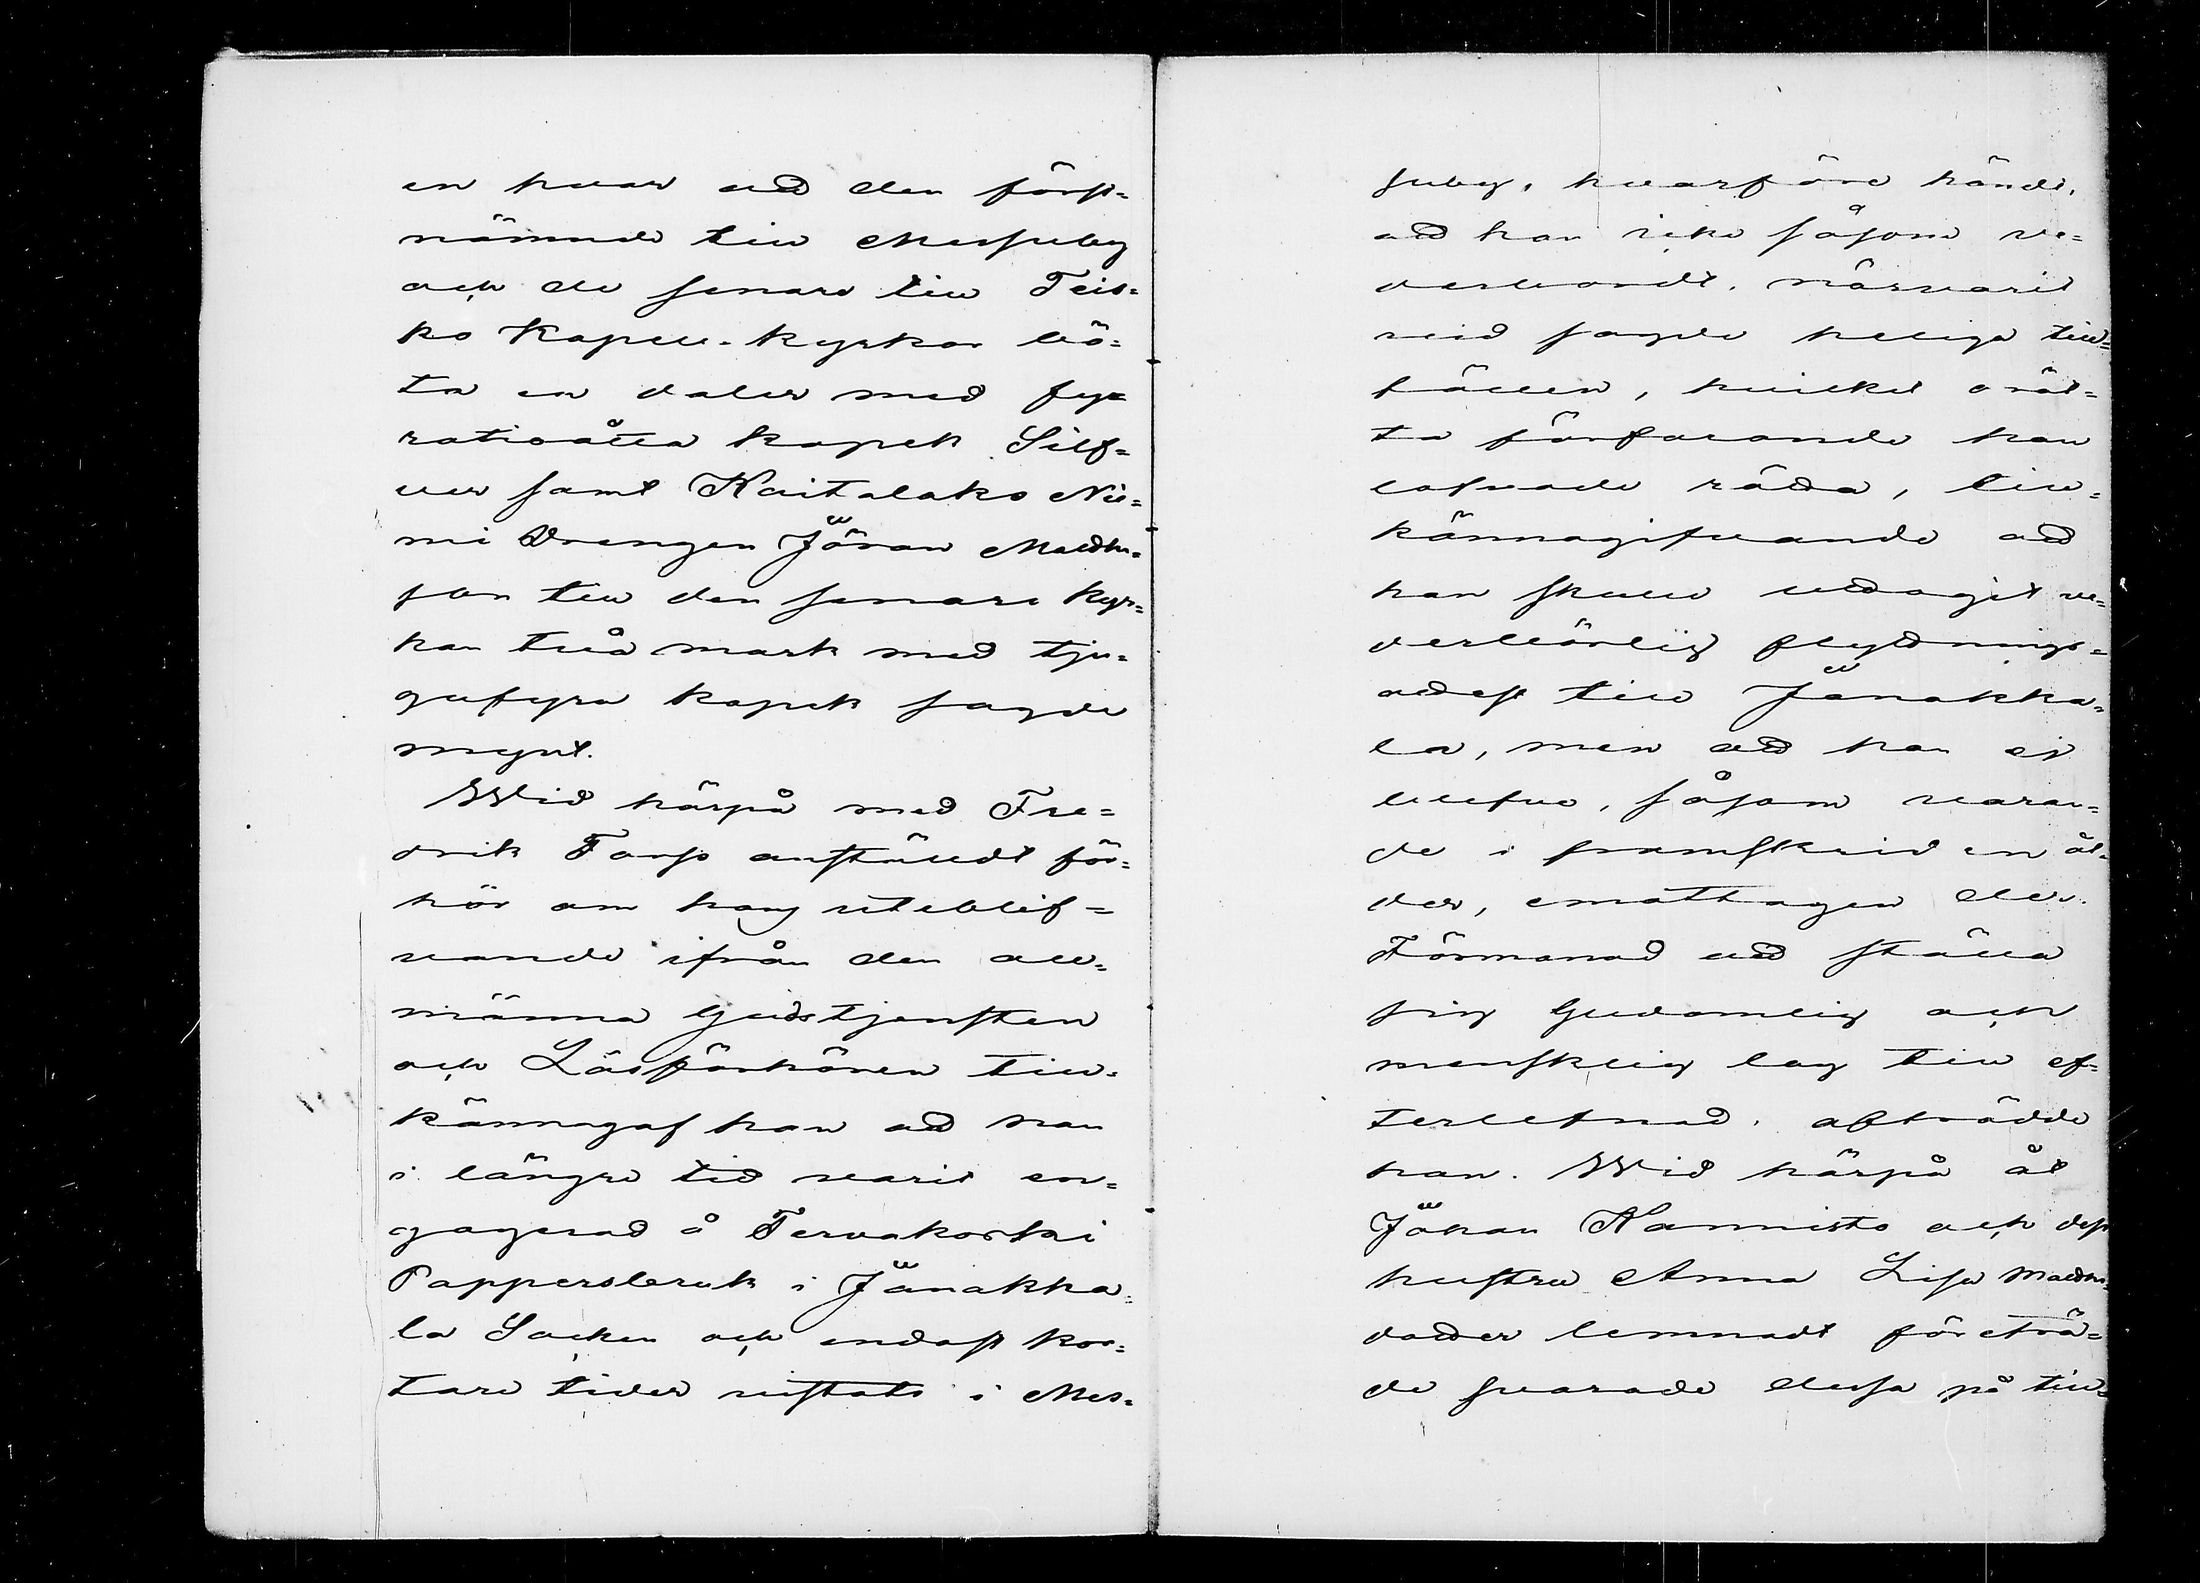 en hvar att den först=
nämnde till Messuby
och de senare till Teis=
ko Kapell-kyrkor bö=
ta en daler med fyr=
atioåtta kopek Silf=
ver samt Kaitalako Nie=
mi Drengen Jöran Matths=
son till den senare kyr=
kan två mark med tju=
gufyra kopek sagde
mynt.
Wid härpå med Fre=
drik Forss anstäldt för=
hör om hans uteblif=
vande ifrån den all=
männa Gudstjensten
och Läsförhören till=
kännagaf han att han
i längre tid varit en=
gagerad å Tervakoski
Pappersbruk i Janakka=
la Socken och endast kor=
tare tider vistats i Mes=
suby, hvarföre händt,
att han icke såsom ve=
derbordt, närvarit
vid sagde heliga till=
fällen, hvilket orät=
ta förfarande han
lofvade rätta, till=
kännagifvande att
han skulle uttagit ve=
derbörlig flyttnings=
attest till Janakka=
la, men att han ej
blefve, såsom varan=
de i framskriden ål=
der, emottagen der.
Förmanad att ställa
sig Gudomlig och
mensklig lag till ef=
terlefnad, afträdde
han. Wid härpå åt
Johan Nannisto och dess
hustru Anna Lisa Matths=
dotter lemnadt företrä=
de svarade dessa på till=